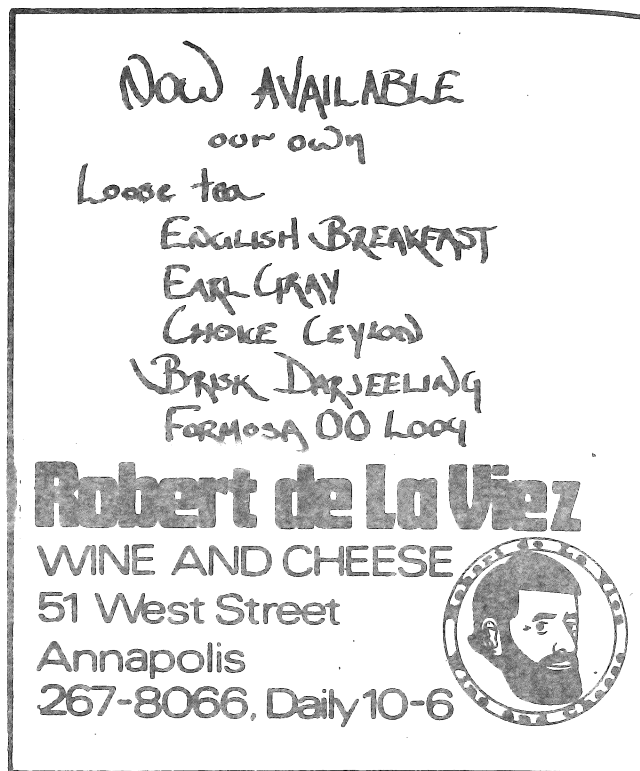 NOW AVAILABLE
our own
Loose tea
ENGLISH BREAKFAST
EARL GRAY
CHOICE CEYLON
BRISK DARJEELING
FORMOSA OO LOOG
Robert de La Viez
WINE AND CHEESE
51 West Street
Annapolis
267-8066, Daily 10-6
Robert de La Viez
Wine and Cheese